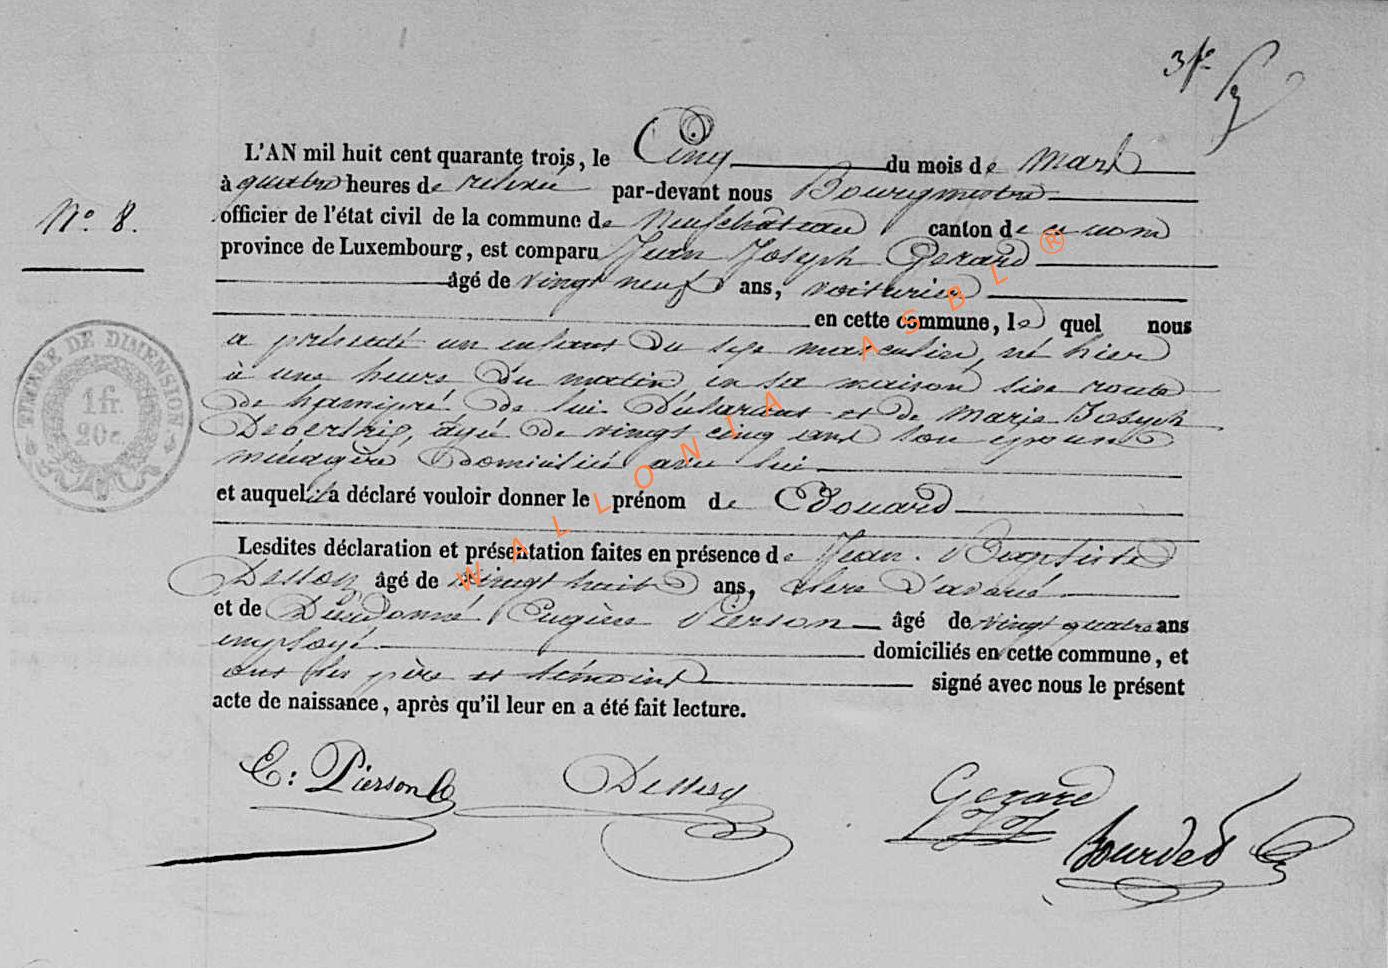 3 fr
L'AN mil huit cent quarante trois, le Cinq du mois de Mars
N° 8.
à quatre heures de relevée par-devant nous Bourgmestre
officier de l'état civil de la commune de Neufchâteau canton de ce nom
province de Luxembourg, est comparu Jean Joseph Gerard
âgé de vingt neuf ans, voiturier
en cette commune, le quel nous
a présenté un enfant du sexe masculin, né hier
à une heure du matin, en sa maison sise route
de hamipré de lui Déclarant et de Marie Joseph
âgée de vingt cinq ans son épouse
ménagère domiciliée avec lui
et auquel il a déclaré vouloir donner le prénom de Edouard
Lesdites déclaration et présentation faites en présence de Jean Baptiste
Dessoy âgé de vingt huit ans, clerc d'avoué
et de Dieudonné Eugène Pierson âgé de vingt quatre ans
employé domiciliés en cette commune, et
ont les père et témoins signé avec nous le présent
acte de naissance, après qu'il leur en a été fait lecture.
E: Pierson Dessoy Gerard
JJ
Bourdes
TIMBRE DE DIMENSION
1 fr.
20 c.
WALLONIA ASBL ®